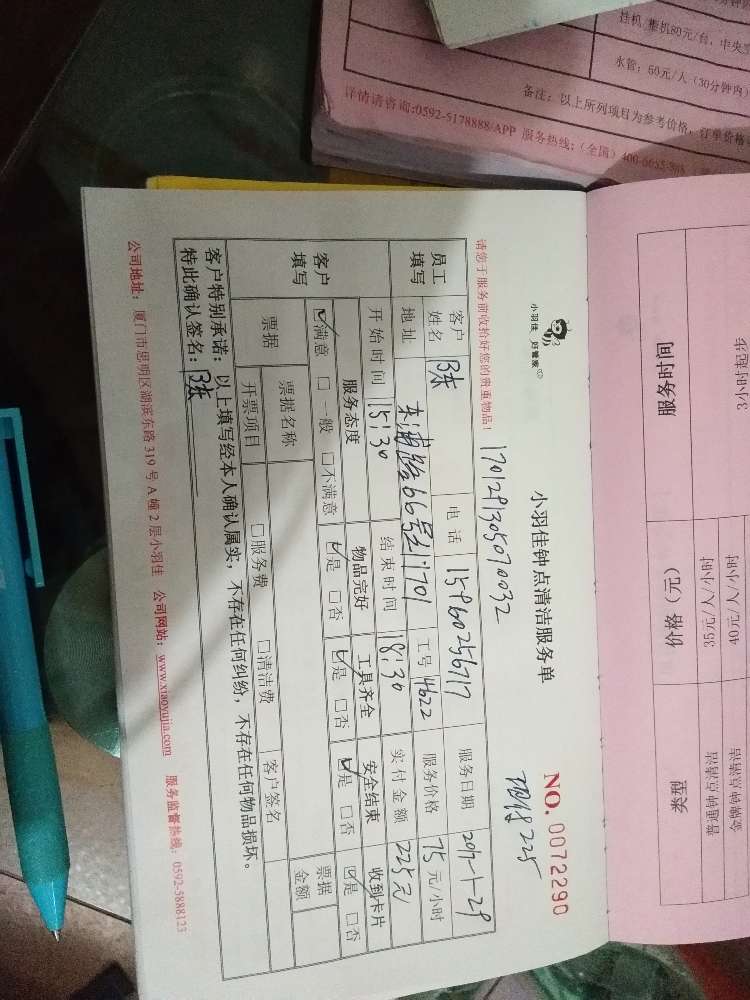 小羽佳 好管家
小羽佳钟点清洁服务单
NO. 0072290
1701291305070032
现付225
请您于服务前收拾好您的贵重物品!
员工填写
客户姓名
电话 15960256717 服务日期 2017-1-29
地址 66号 1701 工号 14622 服务价格 75元/小时
开始时间 15:30 结束时间 18:30 实付金额 225元
客户填写
服务态度 物品完好 工具齐全 安全结束 收到卡片
☑满意 □一般 □不满意 ☑是 □否 ☑是 □否 ☑是 □否 ☑是 □否
票据
票据名称
票据金额
开票项目 □服务费 □清洁费 客户签名
客户特别承诺:以上填写经本人确认属实,不存在任何纠纷,不存在任何物品损坏。
特此确认签名:
公司地址:厦门市思明区湖滨东路319号A幢2层小羽佳 公司网站:www.xiaoyujia.com 服务监督热线:0592-5888123
挂机/柜机80元/台,中央
水管:60元/人(30分钟内)
备注:以上所列项目为参考价格,订单价格
详情请咨询:0592-5178888/APP 服务热线:(全国)
服务时间 价格(元) 类型
3小时起
35元/人/小时 普通钟点清洁
40元/人/小时 金牌钟点清洁